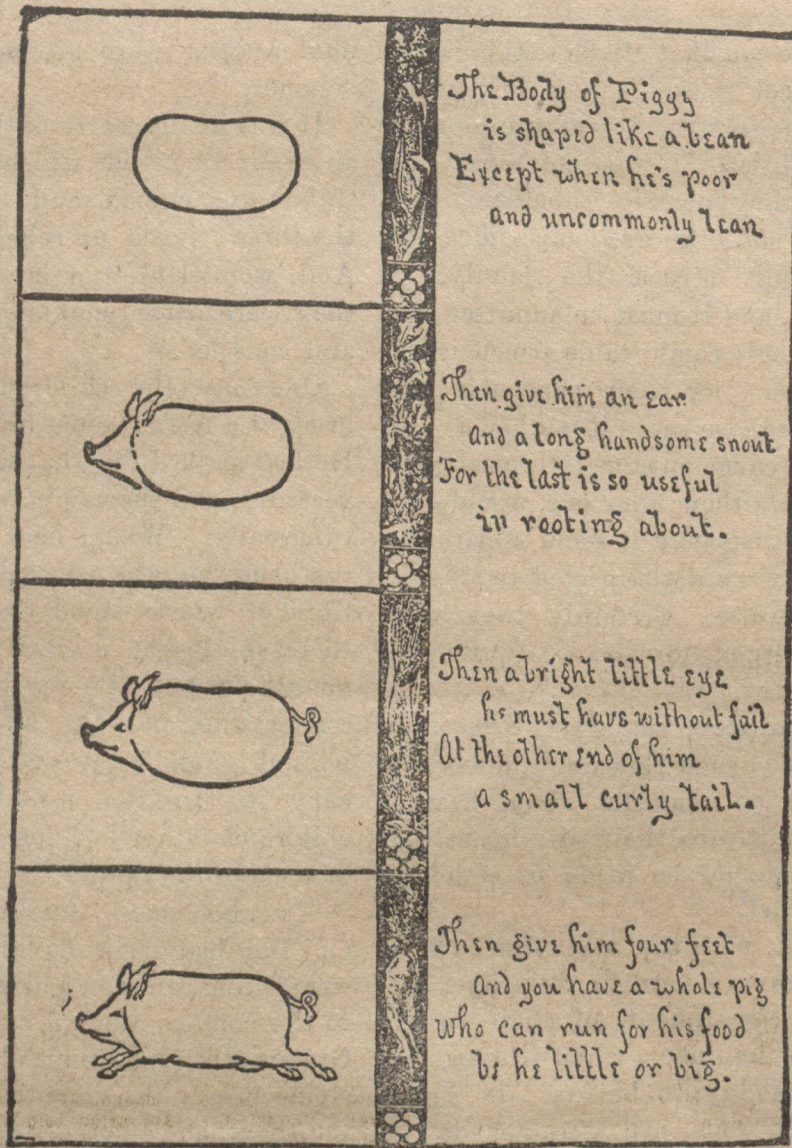 The Body of Piggy
is shaped like a bean
Except when he's poor
and uncommonly lean
Then give him an ear
And a long handsome snout
For the last is so useful
in rooting about.
Then a bright little eye
he must have without fail
At the other end of him
a small curly tail.
Then give him four feet
And you have a whole pig
Who can run for his food
be he little or big.